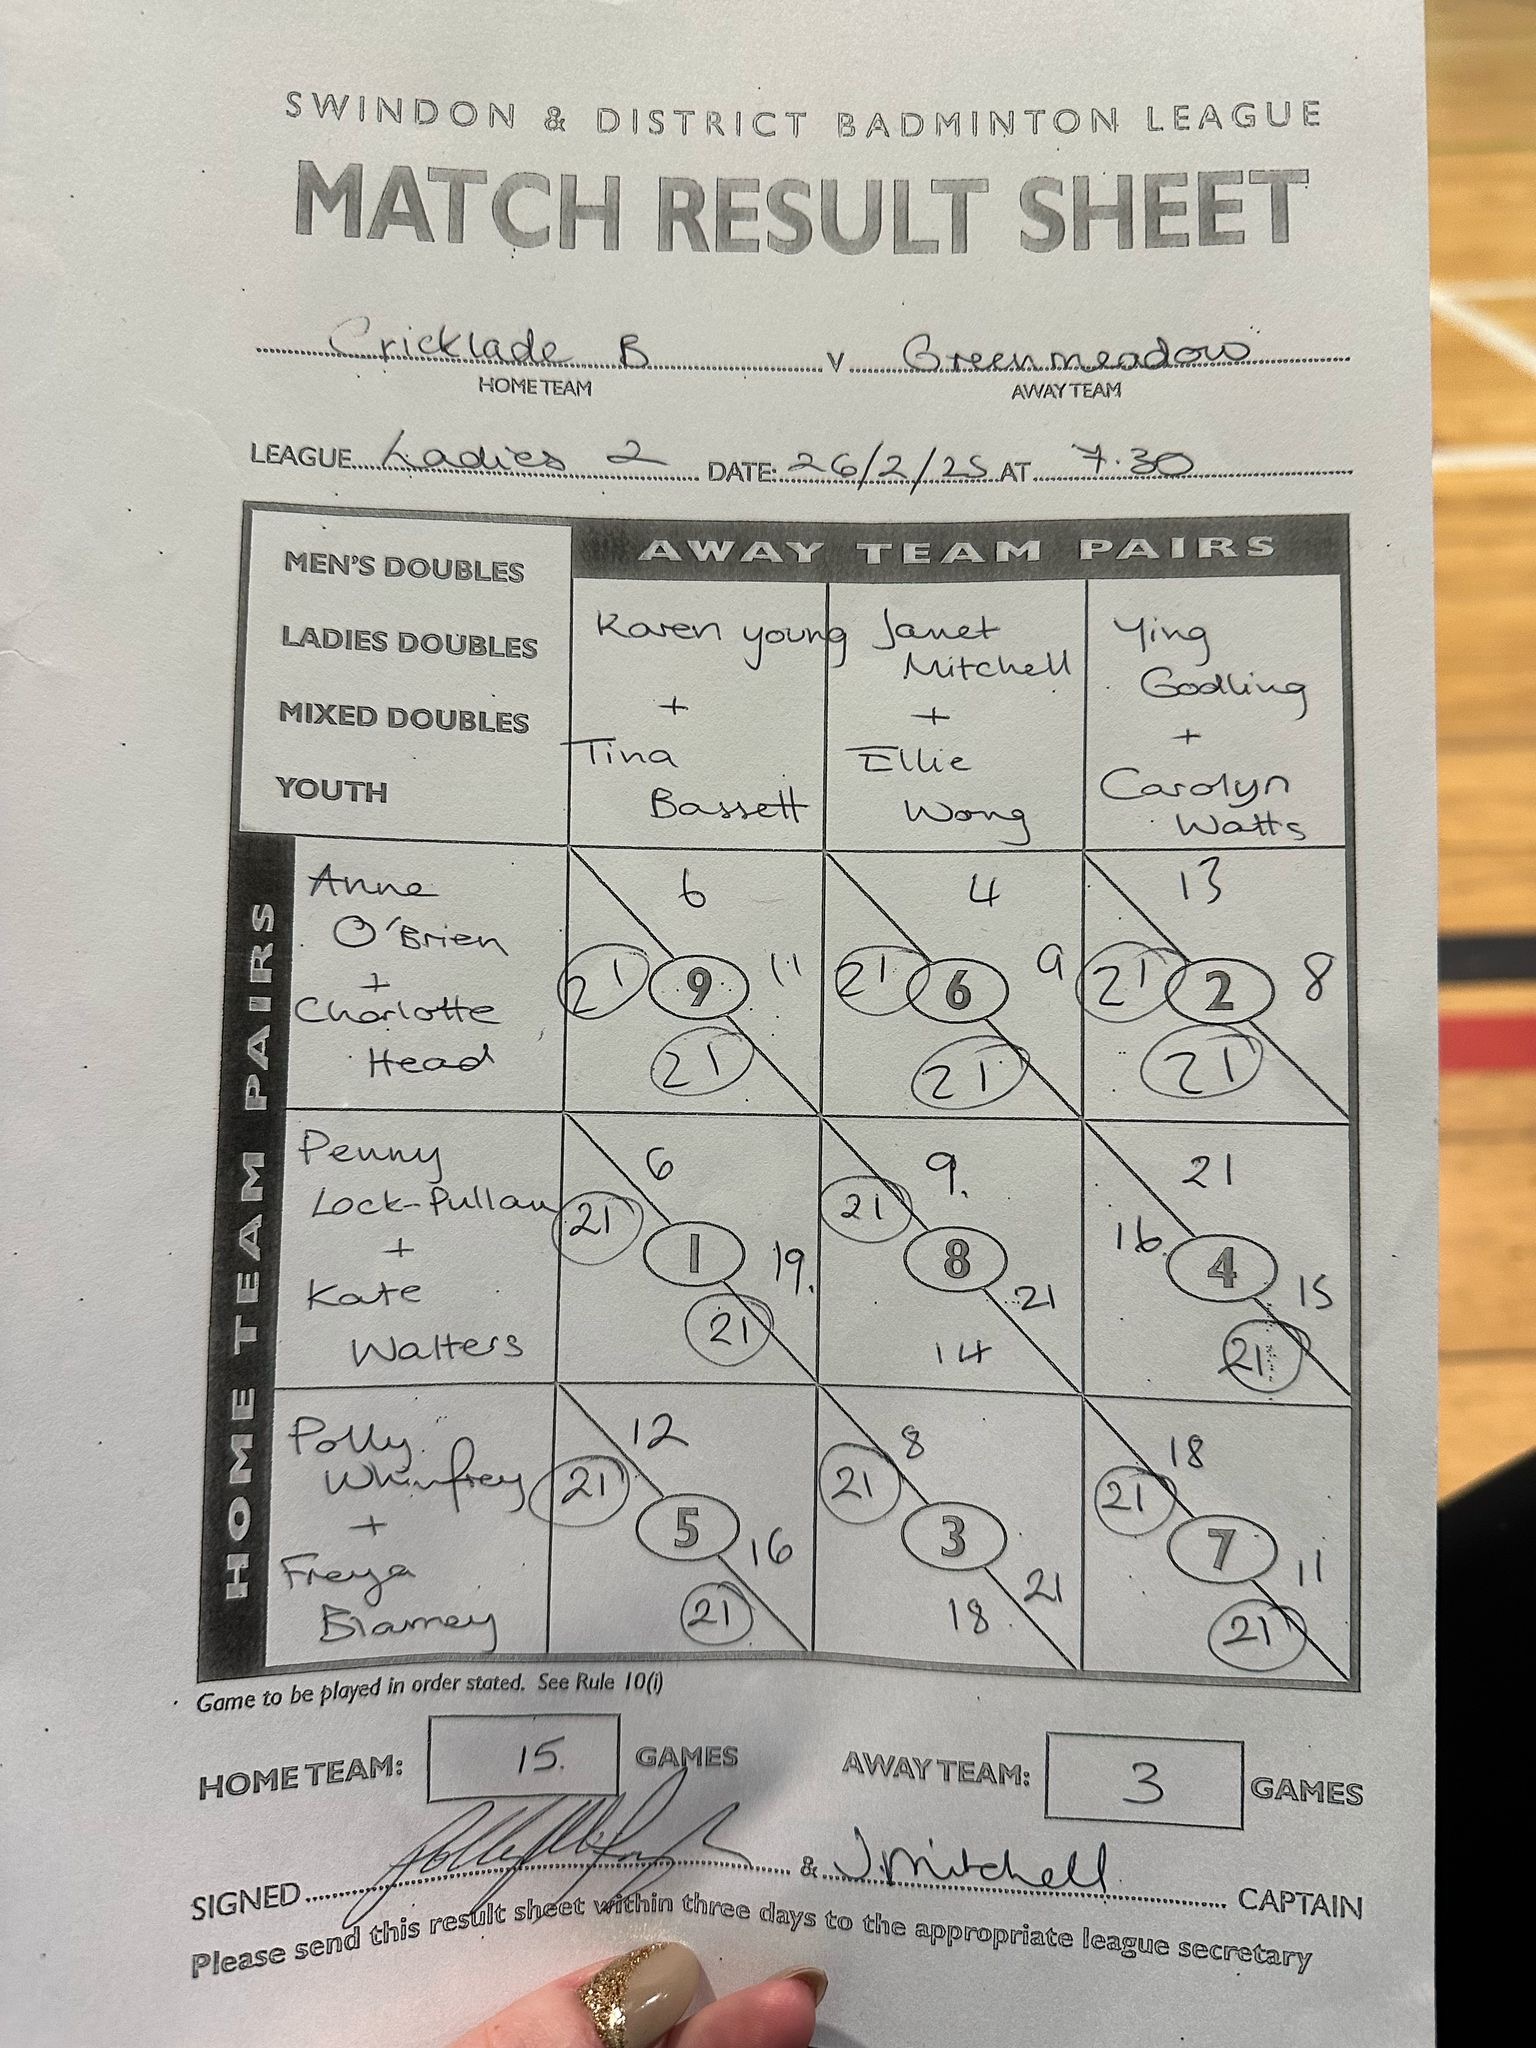 SWINDON & DISTRICT BADMINTON LEAGUE
MATCH RESULT SHEET
Cricklade B v Greenmeadow
HOME TEAM AWAY TEAM
LEAGUE Ladies 2 DATE: 26/2/25 AT 7.30
MEN'S DOUBLES
LADIES DOUBLES
MIXED DOUBLES
YOUTH
AWAY TEAM PAIRS
Karen young
+
Tina
Bassett
Janet
Mitchell
+
Ellie
Wong
Ying
Godling
+
Carolyn
Watts
HOME TEAM PAIRS
Anne
O'Brien
+
Charlotte
Head
6
21 9 11
21
4
21 6 9
21
13
21 2 8
21
Penny
Lock-Pullan
+
Kate
Walters
6
21
1 19.
21
9.
21
8
21
14
21
16. 4
15
21
Polly
Whinfrey
+
Freya
Blamey
12
21
5 16
21
8
21
3
21
18.
18
21
7 11
21
Game to be played in order stated. See Rule 10(i)
HOME TEAM: 15. GAMES AWAY TEAM: 3 GAMES
SIGNED & J. Mitchell CAPTAIN
Please send this result sheet within three days to the appropriate league secretary